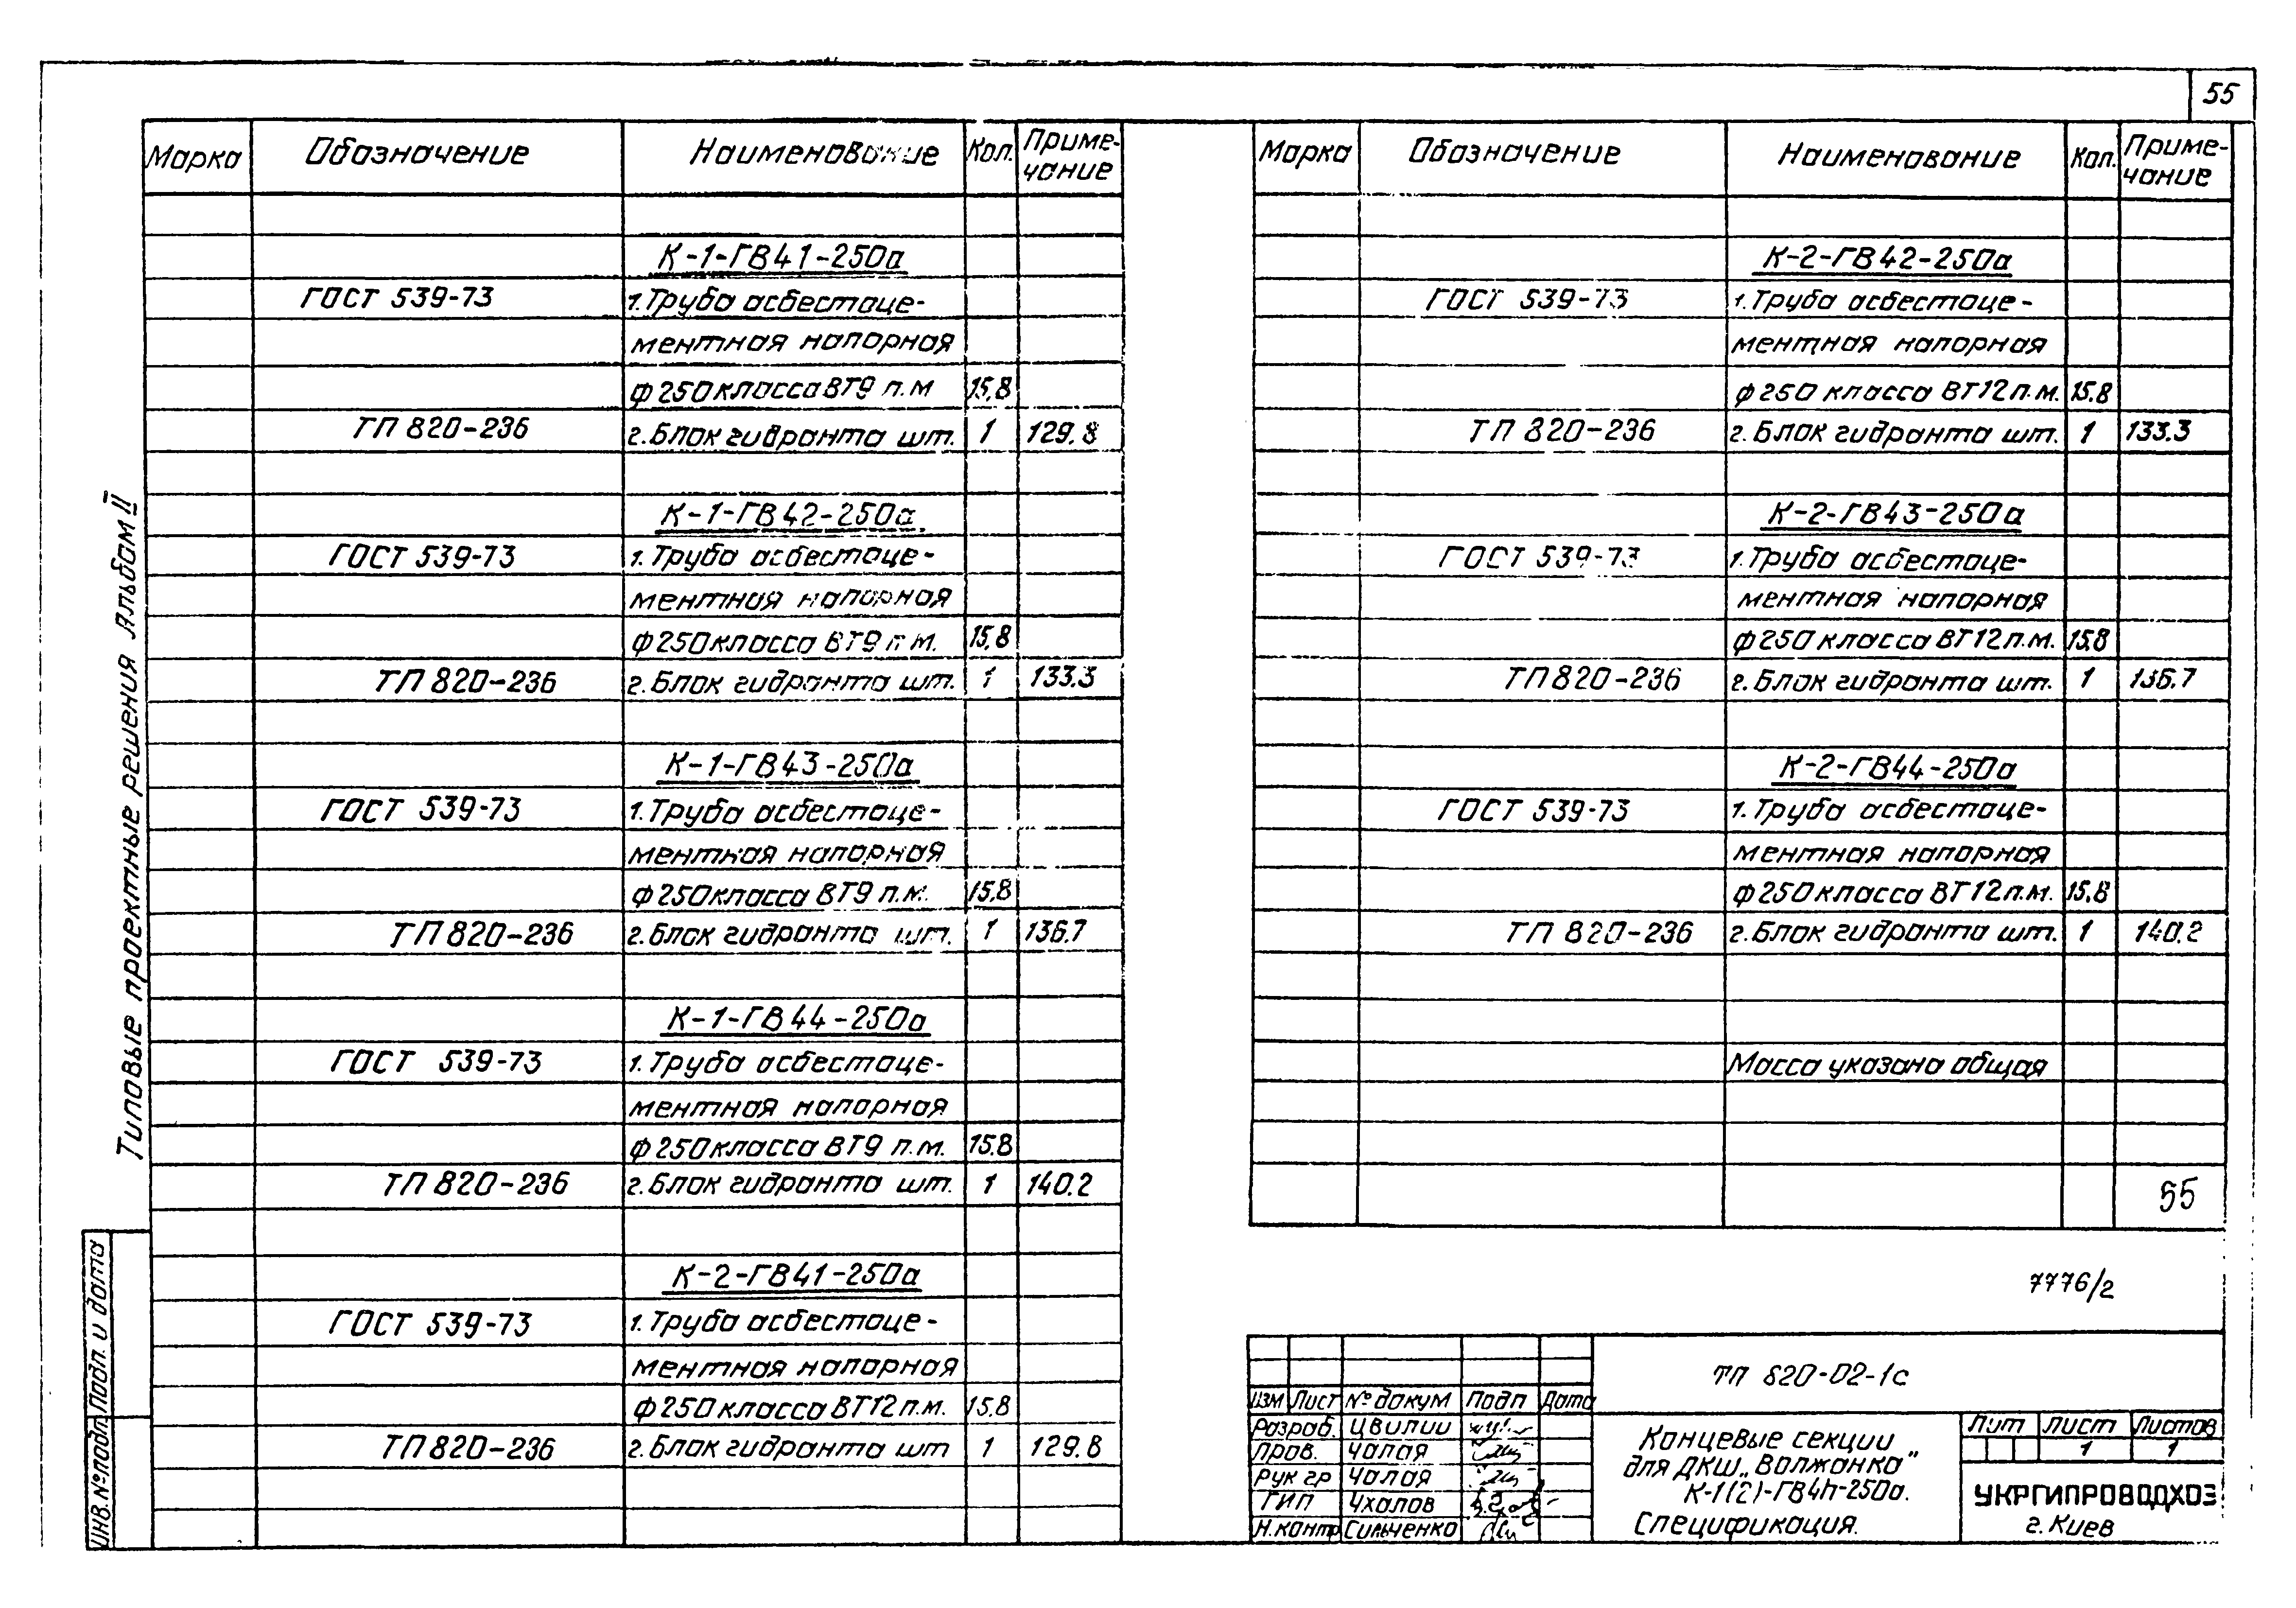 55
Марка Обозначение Наименование Кол. Приме-
чание
К-1-ГВ41-250а
ГОСТ 539-73 1. Труба асбестоце-
ментная напорная
ф250 класса ВТ9 п.м 15,8
ТП 820-236 2. Блок гидранта шт. 1 129.8
К-1-ГВ42-250а
ГОСТ 539-73 1. Труба асбестоце-
ментная напорная
ф250 класса ВТ9 п.м. 15,8
ТП 820-236 2. Блок гидранта шт. 1 133.3
К-1-ГВ43-250а
ГОСТ 539-73 1. Труба асбестоце-
ментная напорная
ф250 класса ВТ9 п.м. 15,8
ТП 820-236 2. Блок гидранта шт. 1 136.7
К-1-ГВ44-250а
ГОСТ 539-73 1. Труба асбестоце-
ментная напорная
ф250 класса ВТ9 п.м. 15.8
ТП 820-236 2. Блок гидранта шт. 1 140.2
К-2-ГВ41-250а
ГОСТ 539-73 1. Труба асбестоце-
ментная напорная
ф250 класса ВТ12 п.м. 15.8
ТП 820-236 2. Блок гидранта шт 1 129.8
Марка Обозначение Наименование Кол. Приме-
чание
К-2-ГВ42-250а
ГОСТ 539-73 1. Труба асбестоце-
ментная напорная
ф250 класса ВТ12 п.м. 15.8
ТП 820-236 2. Блок гидранта шт. 1 133.3
К-2-ГВ43-250а
ГОСТ 539-73 1. Труба асбестоце-
ментная напорная
ф250 класса ВТ12 п.м. 15.8
ТП 820-236 2. Блок гидранта шт. 1 136.7
К-2-ГВ44-250а
ГОСТ 539-73 1. Труба асбестоце-
ментная напорная
ф250 класса ВТ12 п.м. 15.8
ТП 820-236 2. Блок гидранта шт. 1 140.2
Масса указана общая
55
7776/2
ТП 820-02-1с
Изм Лист № докум Подп Дата
Разраб. Цвилии
Пров. Чалая
Рук гр Чалая
ГИП Чхалов
Н.контр Сильченко
Концевые секции
для ДКШ „Волжанка"
К-1(2)-ГВ4h-250а.
Спецификация.
Лит Лист Листов
1 1
УКРГИПРОВОДХОЗ
г. Киев
Типовые проектные решения Альбом II
Инв.№подл. Подп. и дата